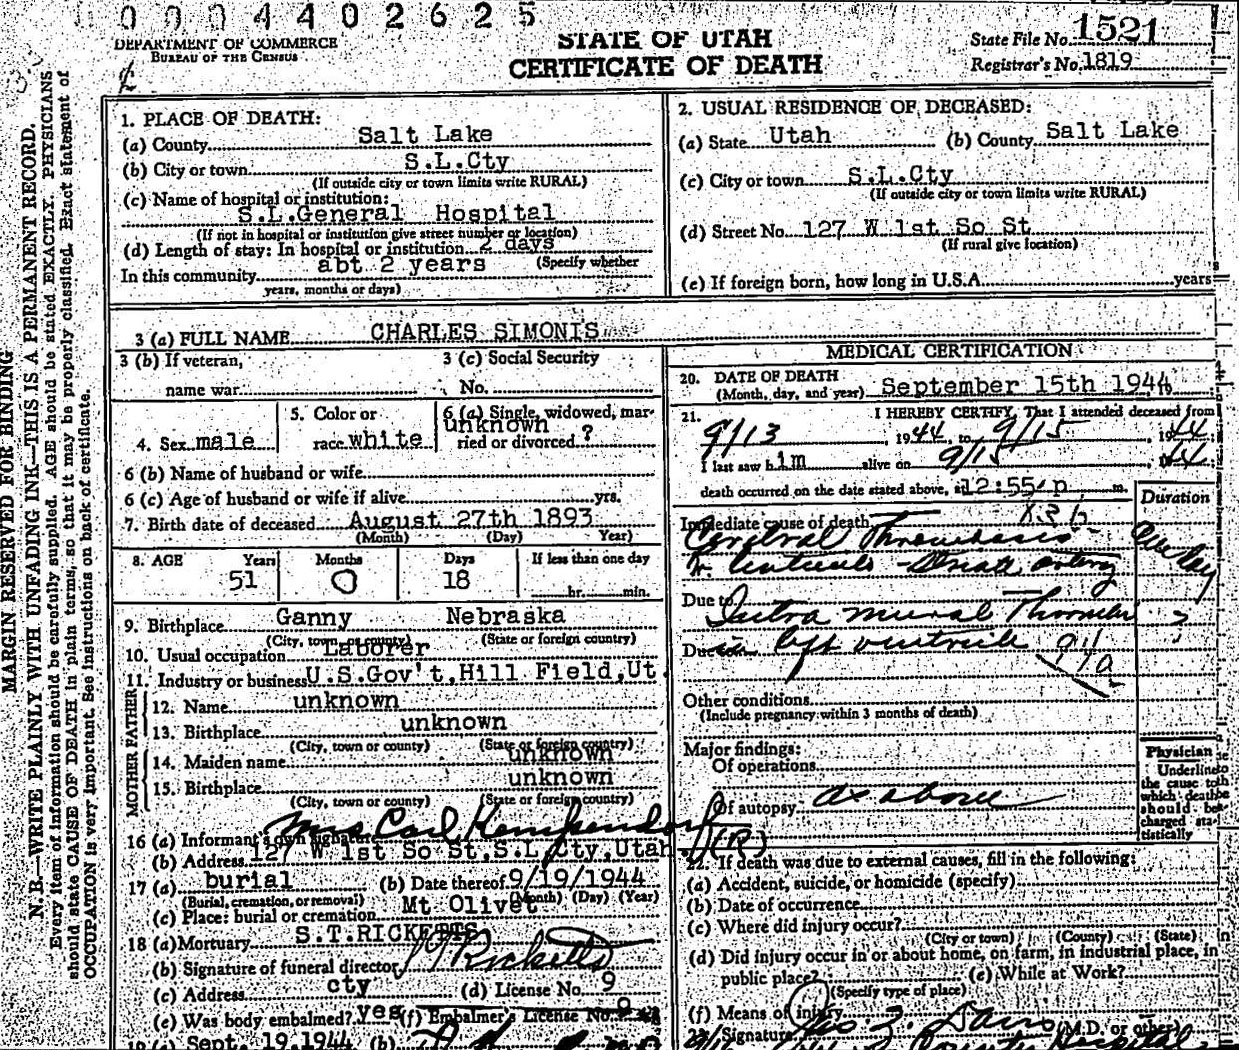 0 0 0 4 4 0 2 6 2 5
DEPARTMENT OF COMMERCE
BUREAU OF THE CENSUS
STATE OF UTAH
CERTIFICATE OF DEATH
State File No. 1521
Registrar's No. 1819
MARGIN RESERVED FOR BINDING
N. B.—WRITE PLAINLY WITH UNFADING INK—THIS IS A PERMANENT RECORD.
Every item of information should be carefully supplied. AGE should be stated EXACTLY. PHYSICIANS
should state CAUSE OF DEATH in plain terms, so that it may be properly classified. Exact statement of
OCCUPATION is very important. See instructions on back of certificate.
1. PLACE OF DEATH:
(a) County Salt Lake
(b) City or town S.L.Cty
(If outside city or town limits write RURAL)
(c) Name of hospital or institution:
S.L.General Hospital
(If not in hospital or institution give street number or location)
(d) Length of stay: In hospital or institution 2 days
(Specify whether
In this community abt 2 years
years, months or days)
2. USUAL RESIDENCE OF DECEASED:
(a) State Utah (b) County Salt Lake
(c) City or town S.L.Cty
(If outside city or town limits write RURAL)
(d) Street No. 127 W 1st So St
(If rural give location)
(e) If foreign born, how long in U.S.A. years
3 (a) FULL NAME CHARLES SIMONIS
3 (b) If veteran,
name war
3 (c) Social Security
No.
4. Sex male
5. Color or
race white
6 (a) Single, widowed, mar-
unknown
ried or divorced ?
6 (b) Name of husband or wife
6 (c) Age of husband or wife if alive yrs.
7. Birth date of deceased August 27th 1893
(Month) (Day) Year)
8. AGE Years Months Days If less than one day
51 0 18 hr. min.
9. Birthplace Ganny Nebraska
(City, town, or county) (State or foreign country)
10. Usual occupation Laborer
11. Industry or business U.S.Gov't,Hill Field,Ut.
FATHER
12. Name unknown
13. Birthplace unknown
(City, town or county) (State or foreign country)
MOTHER
14. Maiden name unknown
15. Birthplace unknown
(City, town or county) (State or foreign country)
16 (a) Informant's own signature Mrs Carl Kempendorf (R)
(b) Address 127 W 1st So St,S.L.Cty,Utah
17 (a) burial (b) Date thereof 9/19/1944
(Burial, cremation, or removal) (Month) (Day) (Year)
(c) Place: burial or cremation Mt. Olivet
18 (a) Mortuary S.T.RICKETTS
(b) Signature of funeral director Ricketts
(c) Address cty (d) License No. 9
(e) Was body embalmed? yes (f) Embalmer's License No. 9
19 (a) Sept. 19,1944 (b)
MEDICAL CERTIFICATION
20. DATE OF DEATH
(Month, day, and year) September 15th 1944
21. I HEREBY CERTIFY, That I attended deceased from
9/13, 1944, to 9/15, 1944;
I last saw him alive on 9/15, 1944;
death occurred on the date stated above, at 12:55 p m.
Duration
Immediate cause of death 83b
Cerebral Thrombosis One day
Due to Intra mural Thrombus ?
Due to in left ventricle 94a
Other conditions
(Include pregnancy within 3 months of death)
Major findings:
Of operations
Of autopsy as above
Physician
Underline
the cause to
which death
should be
charged sta-
tistically
22. If death was due to external causes, fill in the following:
(a) Accident, suicide, or homicide (specify)
(b) Date of occurrence
(c) Where did injury occur?
(City or town) (County) (State)
(d) Did injury occur in or about home, on farm, in industrial place, in
public place? (e) While at Work?
(Specify type of place)
(f) Means of injury
23. Signature Davis (M.D. or other)
County Hospital